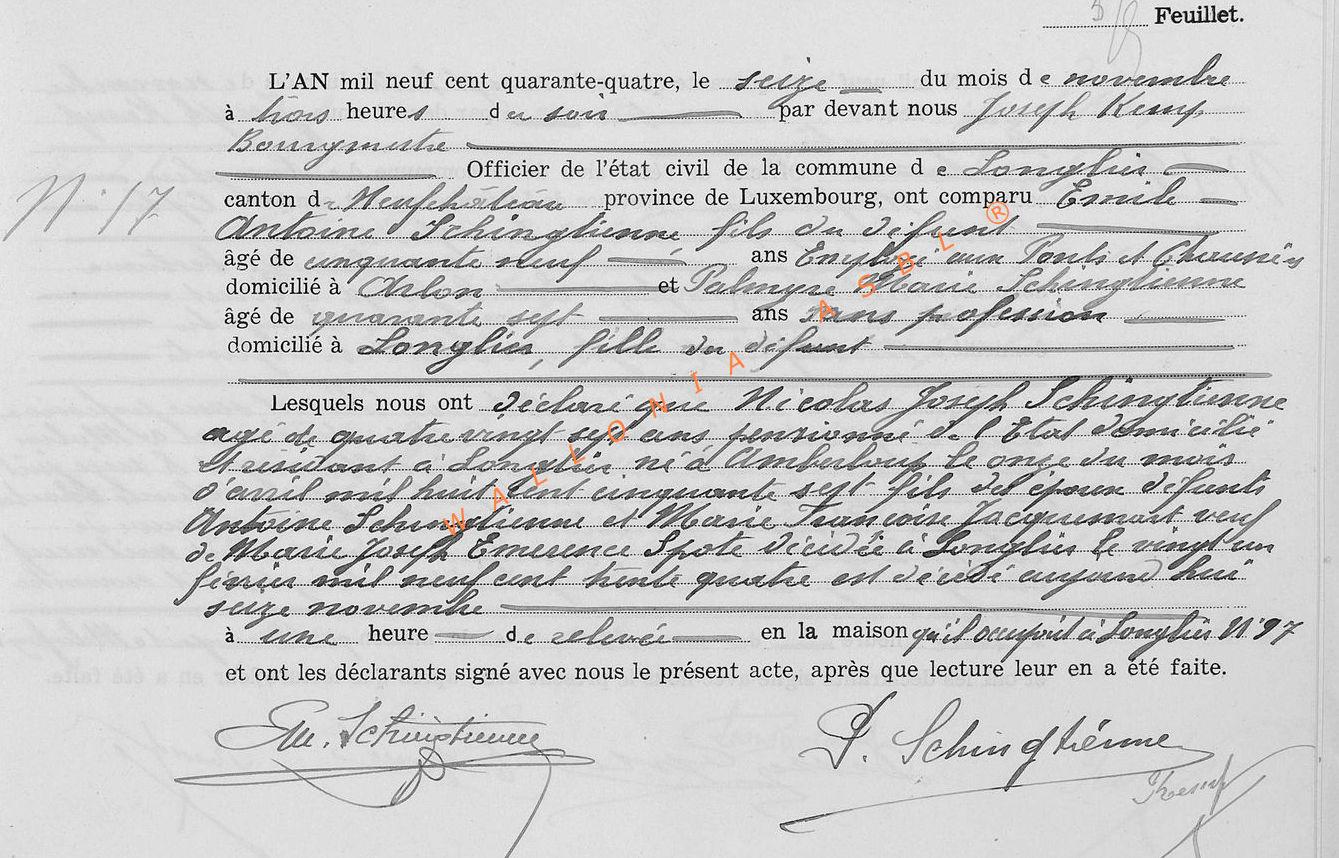 Feuillet.
L'AN mil neuf cent quarante-quatre, le seize du mois de novembre
à trois heures du soir par devant nous Joseph Kemp
Bourgmestre
Officier de l'état civil de la commune de Longlier
N° 17
canton de Neufchâteau province de Luxembourg, ont comparu Emile
Antoine Schingtienne fils du défunt
âgé de cinquante neuf ans Employé aux Ponts et Chaussées
domicilié à Arlon et Palmyre Marie Schingtienne
âgé de quarante sept ans sans profession
domicilié à Longlier, fille du défunt
Lesquels nous ont déclaré que Nicolas Joseph Schingtienne
agé de quatre vingt sept ans pensionné de l'Etat domicilié
et résidant à Longlier né à Amberloup le onze du mois
d'avril mil huit cent cinquante sept fils des époux défunts
Antoine Schingtienne et Marie Françoise Jacquemart veuf
de Marie Joseph Emerence Spote décédée à Longlier le vingt un
février mil neuf cent trente quatre est décédé aujourd'hui
seize novembre
à une heure de relevée en la maison qu'il occupait à Longlier N° 97
et ont les déclarants signé avec nous le présent acte, après que lecture leur en a été faite.
Em. Schingtienne P. Schingtienne
JKemp
WALLONIA ASBL ®